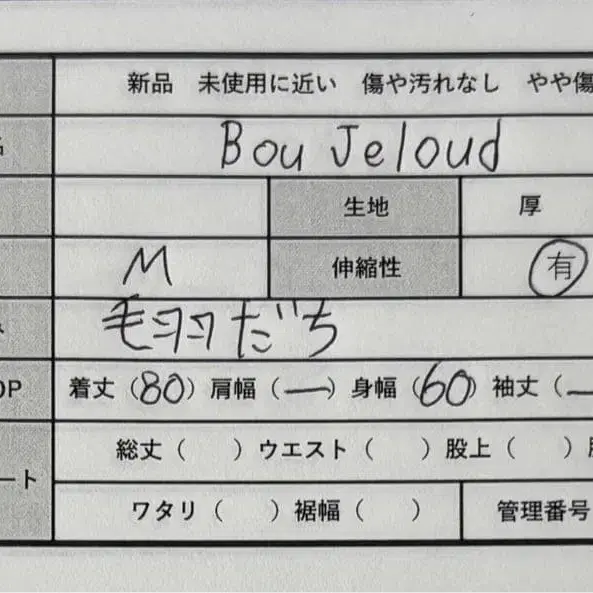 新品 未使用に近い 傷や汚れなし やや傷
名
Bou Jeloud
生地 厚
M 伸縮性 有
毛羽だち
OP 着丈(80) 肩幅(—) 身幅(60) 袖丈(—
総丈( ) ウエスト( ) 股上( )
ート
ワタリ( ) 裾幅( ) 管理番号